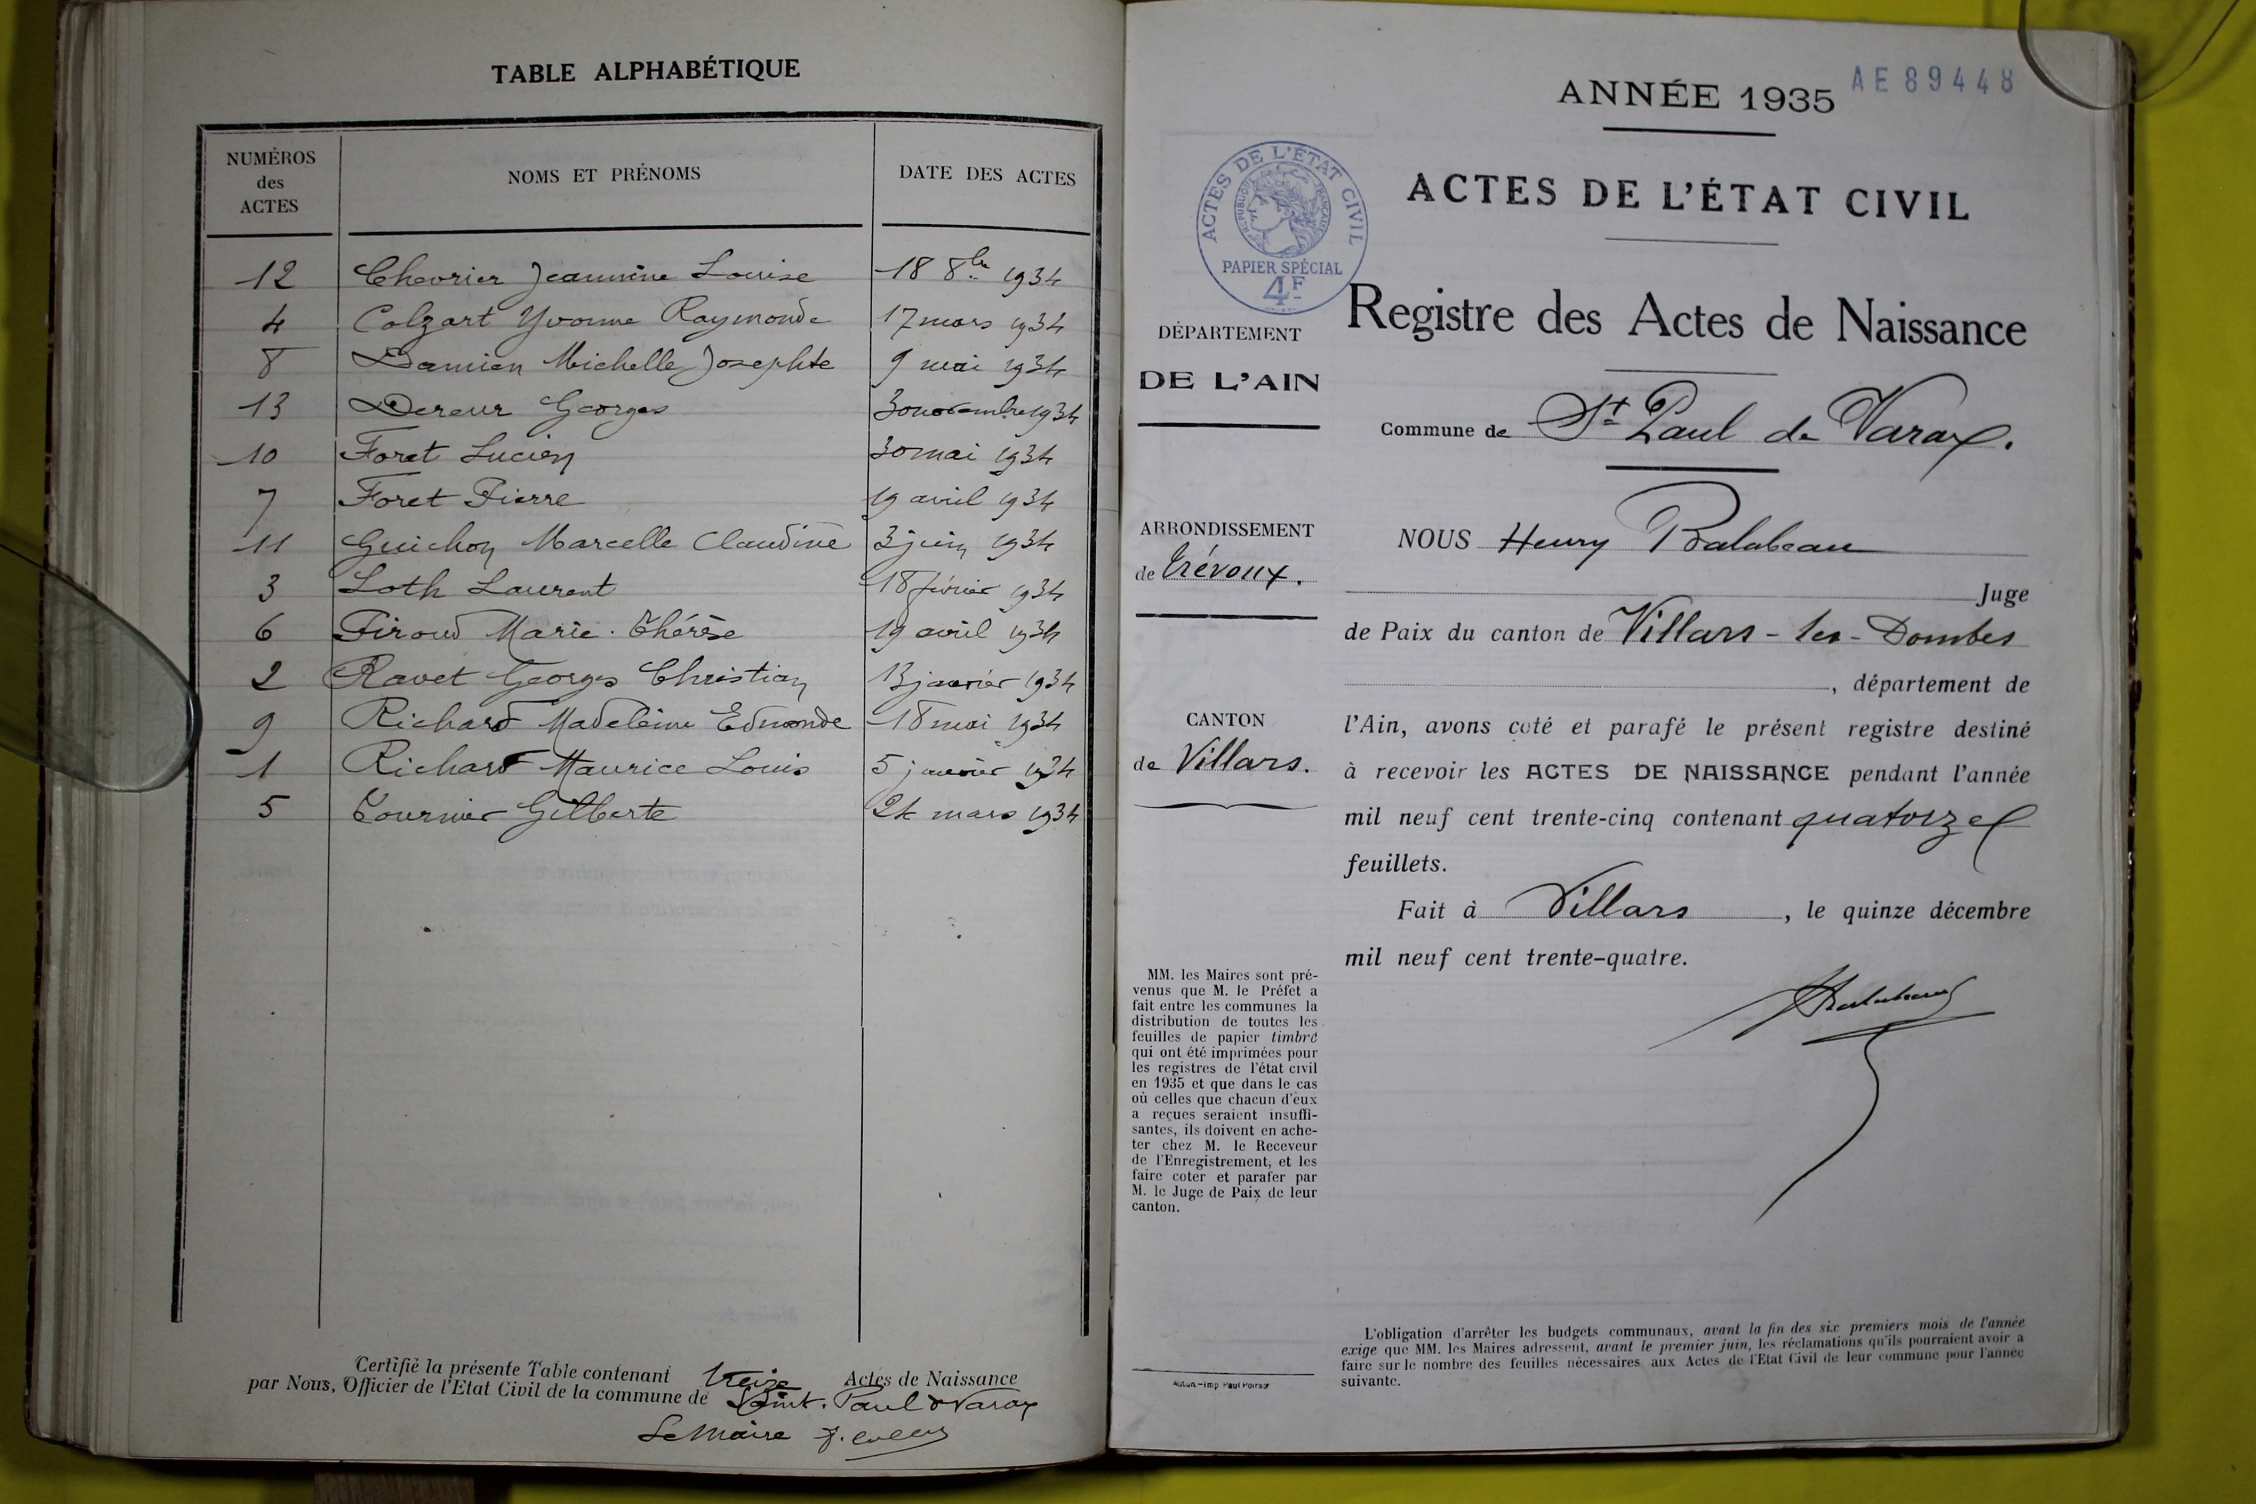 TABLE ALPHABÉTIQUE
NUMÉROS des ACTES | NOMS ET PRÉNOMS | DATE DES ACTES
12 Chevrier Jeannine Louise 18 8bre 1934
4 Colzart Yvonne Raymonde 17 mars 1934
8 Damien Michelle Josephte 9 mai 1934
13 Dereur Georges 30 novembre 1934
10 Foret Lucien 30 mai 1934
7 Foret Pierre 19 avril 1934
11 Guichon Marcelle Claudine 3 juin 1934
3 Loth Laurent 18 février 1934
6 Piroud Marie-Thérèse 19 avril 1934
2 Ravet Georges Christian 13 janvier 1934
9 Richard Madeleine Edmonde 18 mai 1934
1 Richard Maurice Louis 5 janvier 1934
5 Tournier Gilberte 24 mars 1934
Certifié la présente Table contenant treize Actes de Naissance
par Nous, Officier de l'Etat Civil de la commune de Saint-Paul d Varax
Le Maire
ANNÉE 1935
AE 89448
ACTES DE L'ÉTAT CIVIL
ACTES DE L'ÉTAT CIVIL
RÉPUBLIQUE FRANÇAISE
PAPIER SPÉCIAL
4F
Registre des Actes de Naissance
DÉPARTEMENT
DE L'AIN
Commune de St Paul de Varax.
ARRONDISSEMENT
de Trévoux.
CANTON
de Villars.
NOUS Henry Balabeau
Juge
de Paix du canton de Villars-les-Dombes
, département de
l'Ain, avons coté et parafé le présent registre destiné
à recevoir les ACTES DE NAISSANCE pendant l'année
mil neuf cent trente-cinq contenant quatorze
feuillets.
Fait à Villars, le quinze décembre
mil neuf cent trente-quatre.
MM. les Maires sont pré-
venus que M. le Préfet a
fait entre les communes la
distribution de toutes les
feuilles de papier timbré
qui ont été imprimées pour
les registres de l'état civil
en 1935 et que dans le cas
où celles que chacun d'eux
a reçues seraient insuffi-
santes, ils doivent en ache-
ter chez M. le Receveur
de l'Enregistrement, et les
faire coter et parafer par
M. le Juge de Paix de leur
canton.
L'obligation d'arrêter les budgets communaux, avant la fin des six premiers mois de l'année
exige que MM. les Maires adressent, avant le premier juin, les réclamations qu'ils pourraient avoir à
faire sur le nombre des feuilles nécessaires aux Actes de l'Etat Civil de leur commune pour l'année
suivante.
Autun.-Imp. Paul Poirson